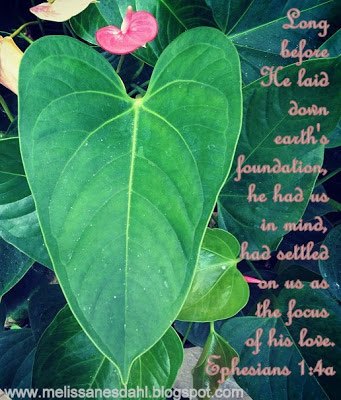 Long
before
He laid
down
earth's
foundation,
he had us
in mind,
had settled
on us as
the focus
of his love.
Ephesians 1:4a
www.melissanesdahl.blogspot.com